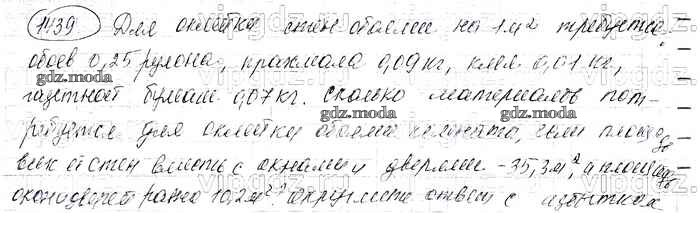 1439 Для оклейки стен обоями на 1 м² требуется
обоев 0,25 рулона, крахмала 0,09 кг, клея 0,01 кг,
gdz.moda gdz.moda
газетной бумаги 0,07 кг. Сколько материалов пот-
ребуется для оклейки обоями комнаты, если площадь
всех стен вместе с окнами и дверями - 35,3 м², а площадь
окон и дверей равно 10,2 м²? Округлите ответ с избытком
gdz.moda gdz.moda